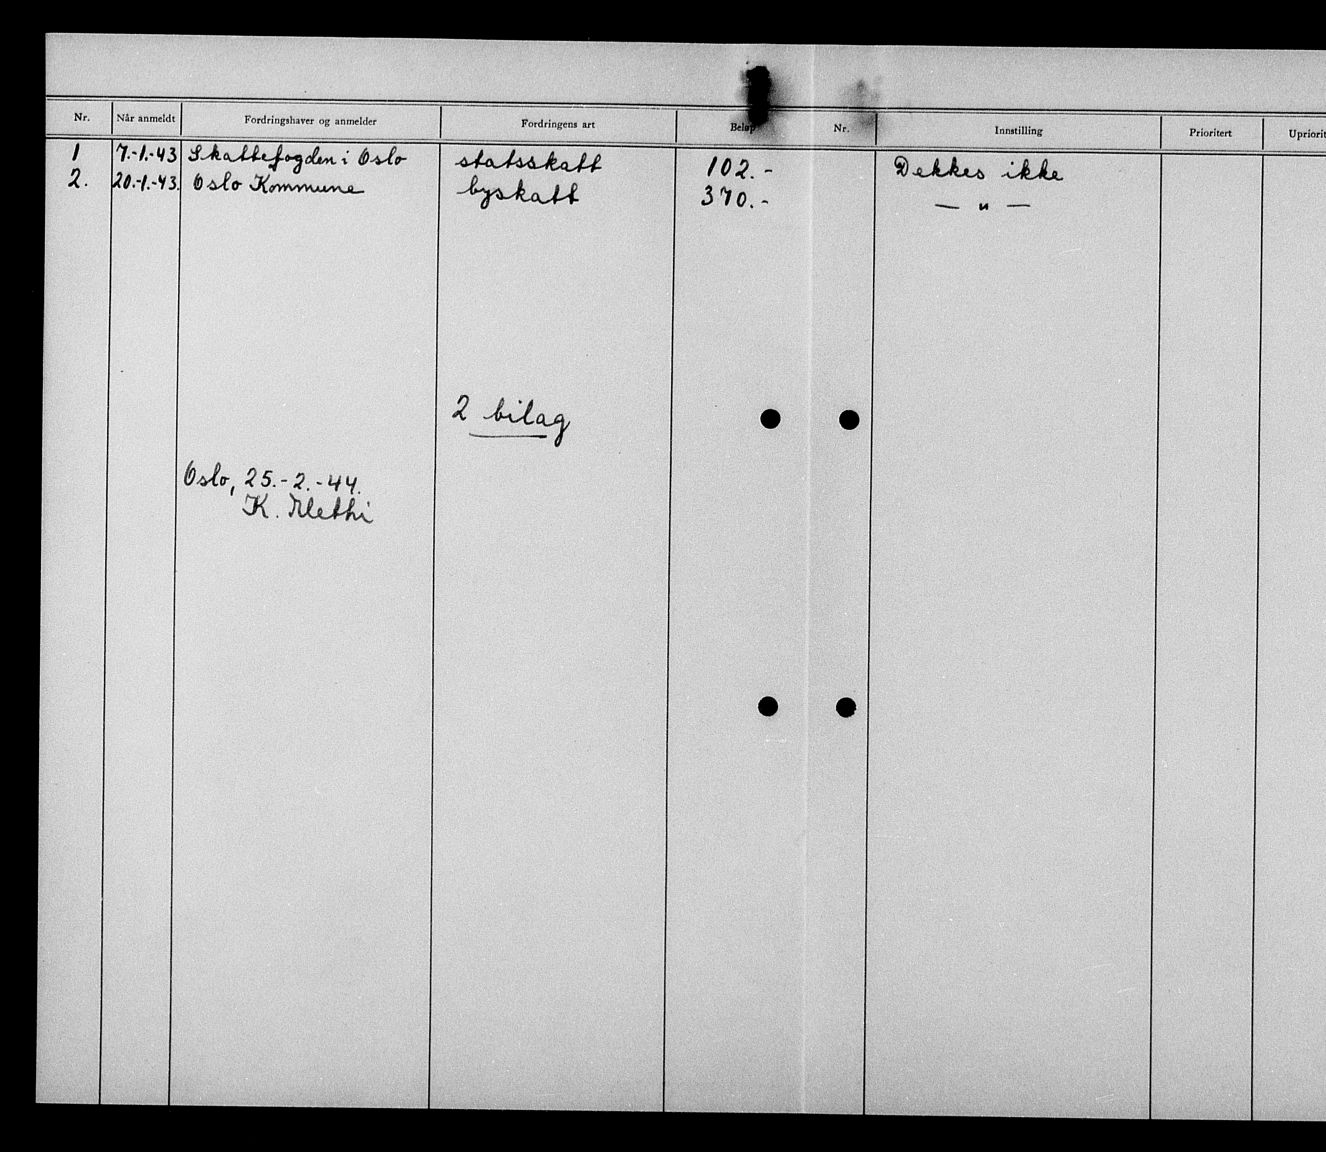 Nr. Når anmeldt Fordringshaver og anmelder Fordringens art Beløp Nr. Innstilling Prioritert Upriorit
1 7.-1.-43 Skattefogden i Oslo statsskatt 102.- Dekkes ikke
2. 20.-1.-43. Oslo Kommune byskatt 370.- — " —
2 bilag
Oslo, 25.-2.-44.
K.